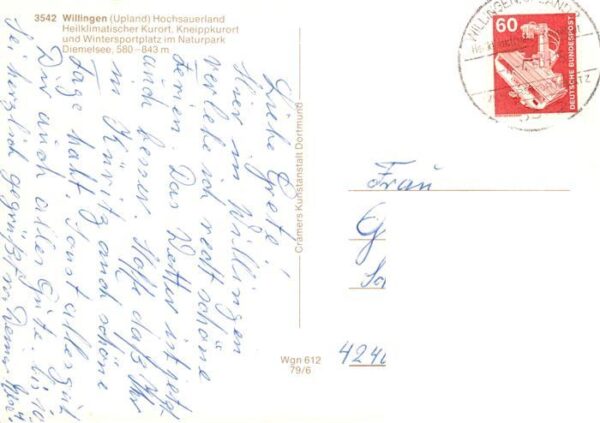 3542 Willingen (Upland) Hochsauerland
Heilklimatischer Kurort, Kneippkurort
und Wintersportplatz im Naturpark
Diemelsee, 580–843 m
Liebe Grete!
Hier in Willingen
verlebe ich recht schöne
Ferien. Das Wetter ist jetzt
auch besser. Hoffe daß Ihr
im auch schöne
Tage habt. Sonst alles gute
Dir auch alles Gute. Bis
Sei herzlich gegrüßt von Deiner
Cramers Kunstanstalt Dortmund
Wgn 612
79/6
WILLINGEN
60
DEUTSCHE BUNDESPOST
Frau
G
4240